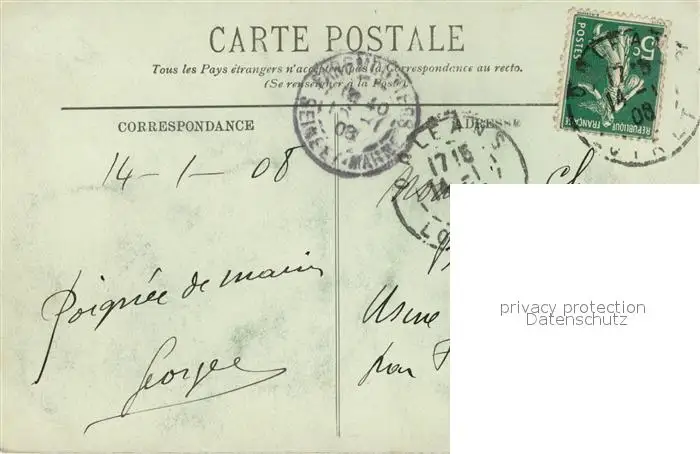 CARTE POSTALE
Tous les Pays étrangers n'acceptent pas la Correspondance au recto.
(Se renseigner à la Poste).
CORRESPONDANCE
ADRESSE
14-1-08
Poignée de main
Georges
Usine
par
5c
POSTES
REPUBLIQUE FRANÇAISE
SEINE-ET-MARNE
08
ORLEANS
17 15
LOIRET
17
14
08
privacy protection
Datenschutz